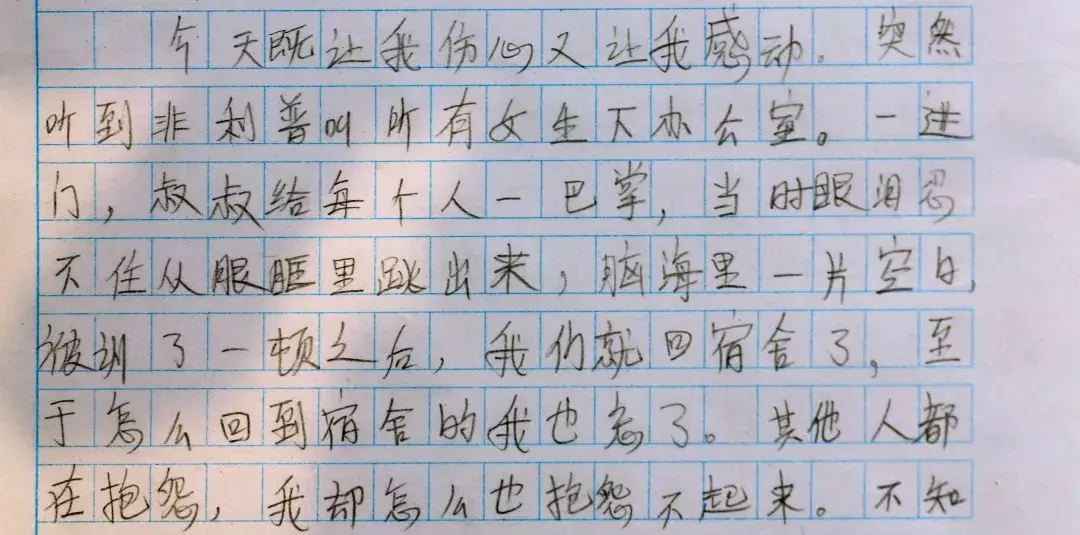 今天既让我伤心又让我感动。突然
听到非利普叫所有女生下办公室。一进
门，叔叔给每个人一巴掌，当时眼泪忍
不住从眼眶里跳出来，脑海里一片空白，
被训了一顿之后，我们就回宿舍了，至
于怎么回到宿舍的我也忘了。其他人都
在抱怨，我却怎么也抱怨不起来。不知